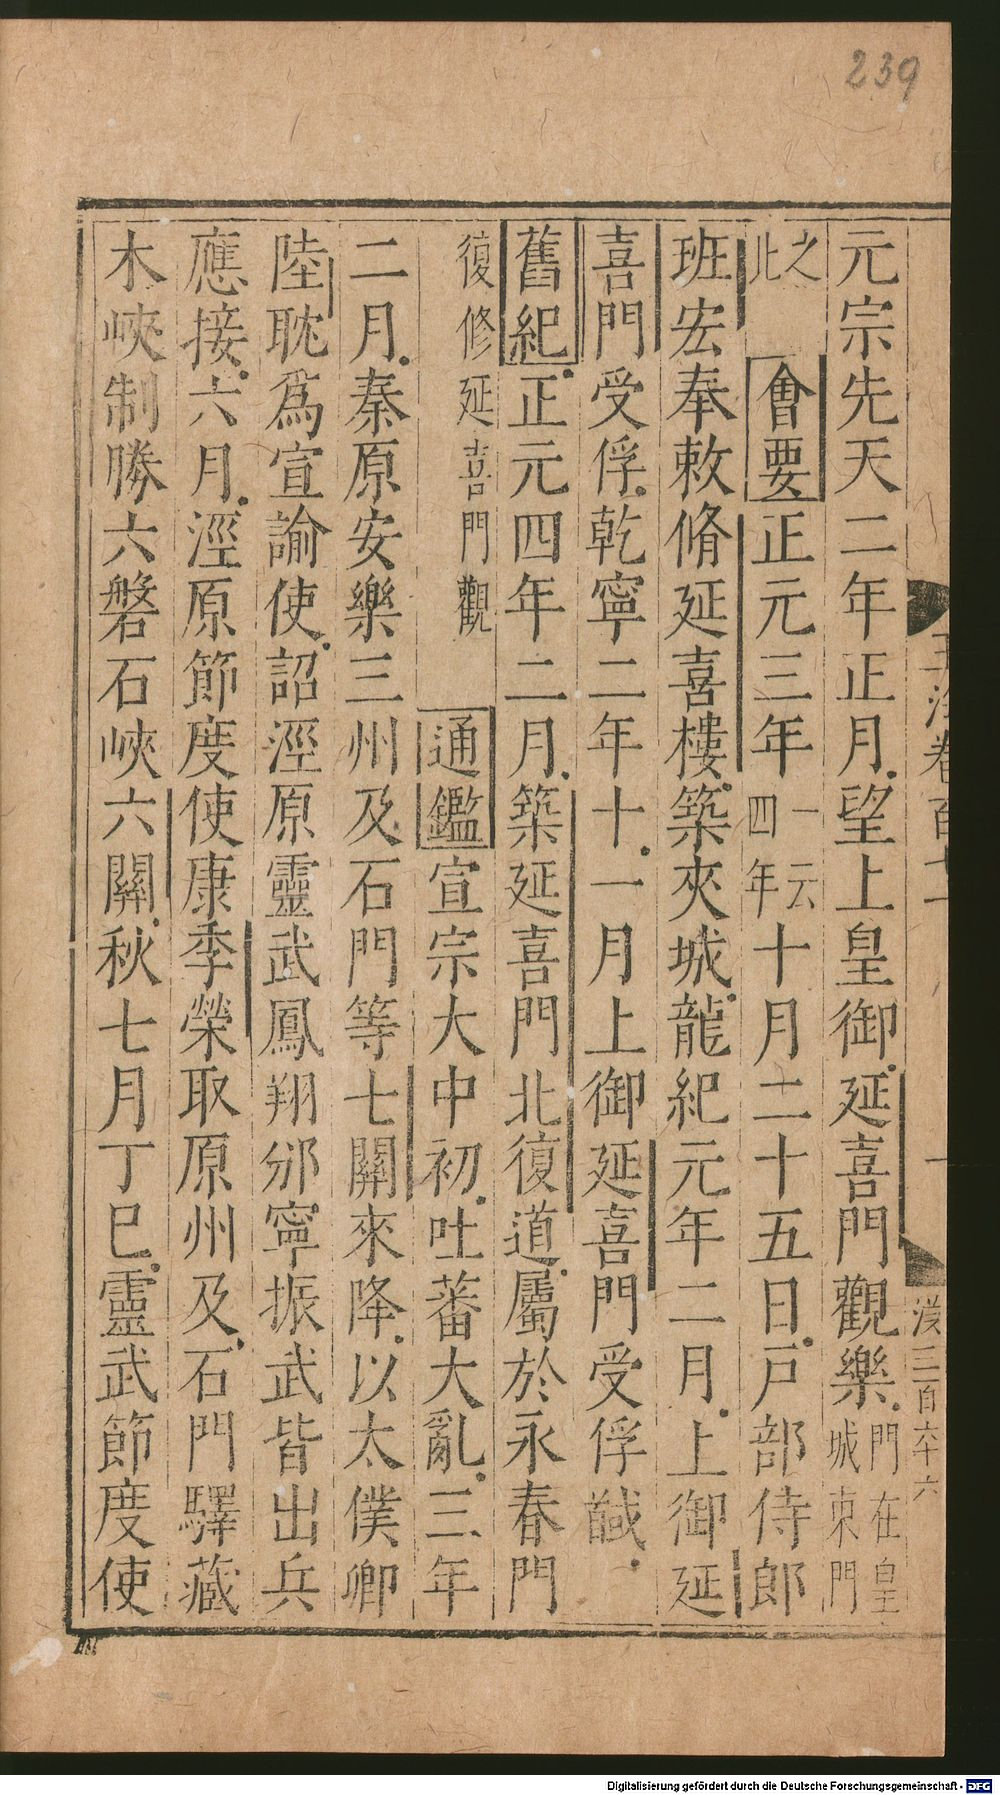 239
元宗先天二年正月望上皇御延喜門觀樂門在皇城東門
之北 會要正元三年一云四年十月二十五日戸部侍郎
班宏奉敕脩延喜樓築夾城龍紀元年二月上御延
喜門受俘乾寧二年十一月上御延喜門受俘馘
舊紀正元四年二月築延喜門北復道屬於永春門
復修延喜門觀 通鑑宣宗大中初吐蕃大亂三年
二月秦原安樂三州及石門等七關來降以太僕卿
陸耽為宣諭使詔涇原靈武鳳翔邠寧振武皆出兵
應接六月涇原節度使康季榮取原州及石門驛藏
木峽制勝六磐石峽六關秋七月丁巳靈武節度使
Digitalisierung gefördert durch die Deutsche Forschungsgemeinschaft - DFG